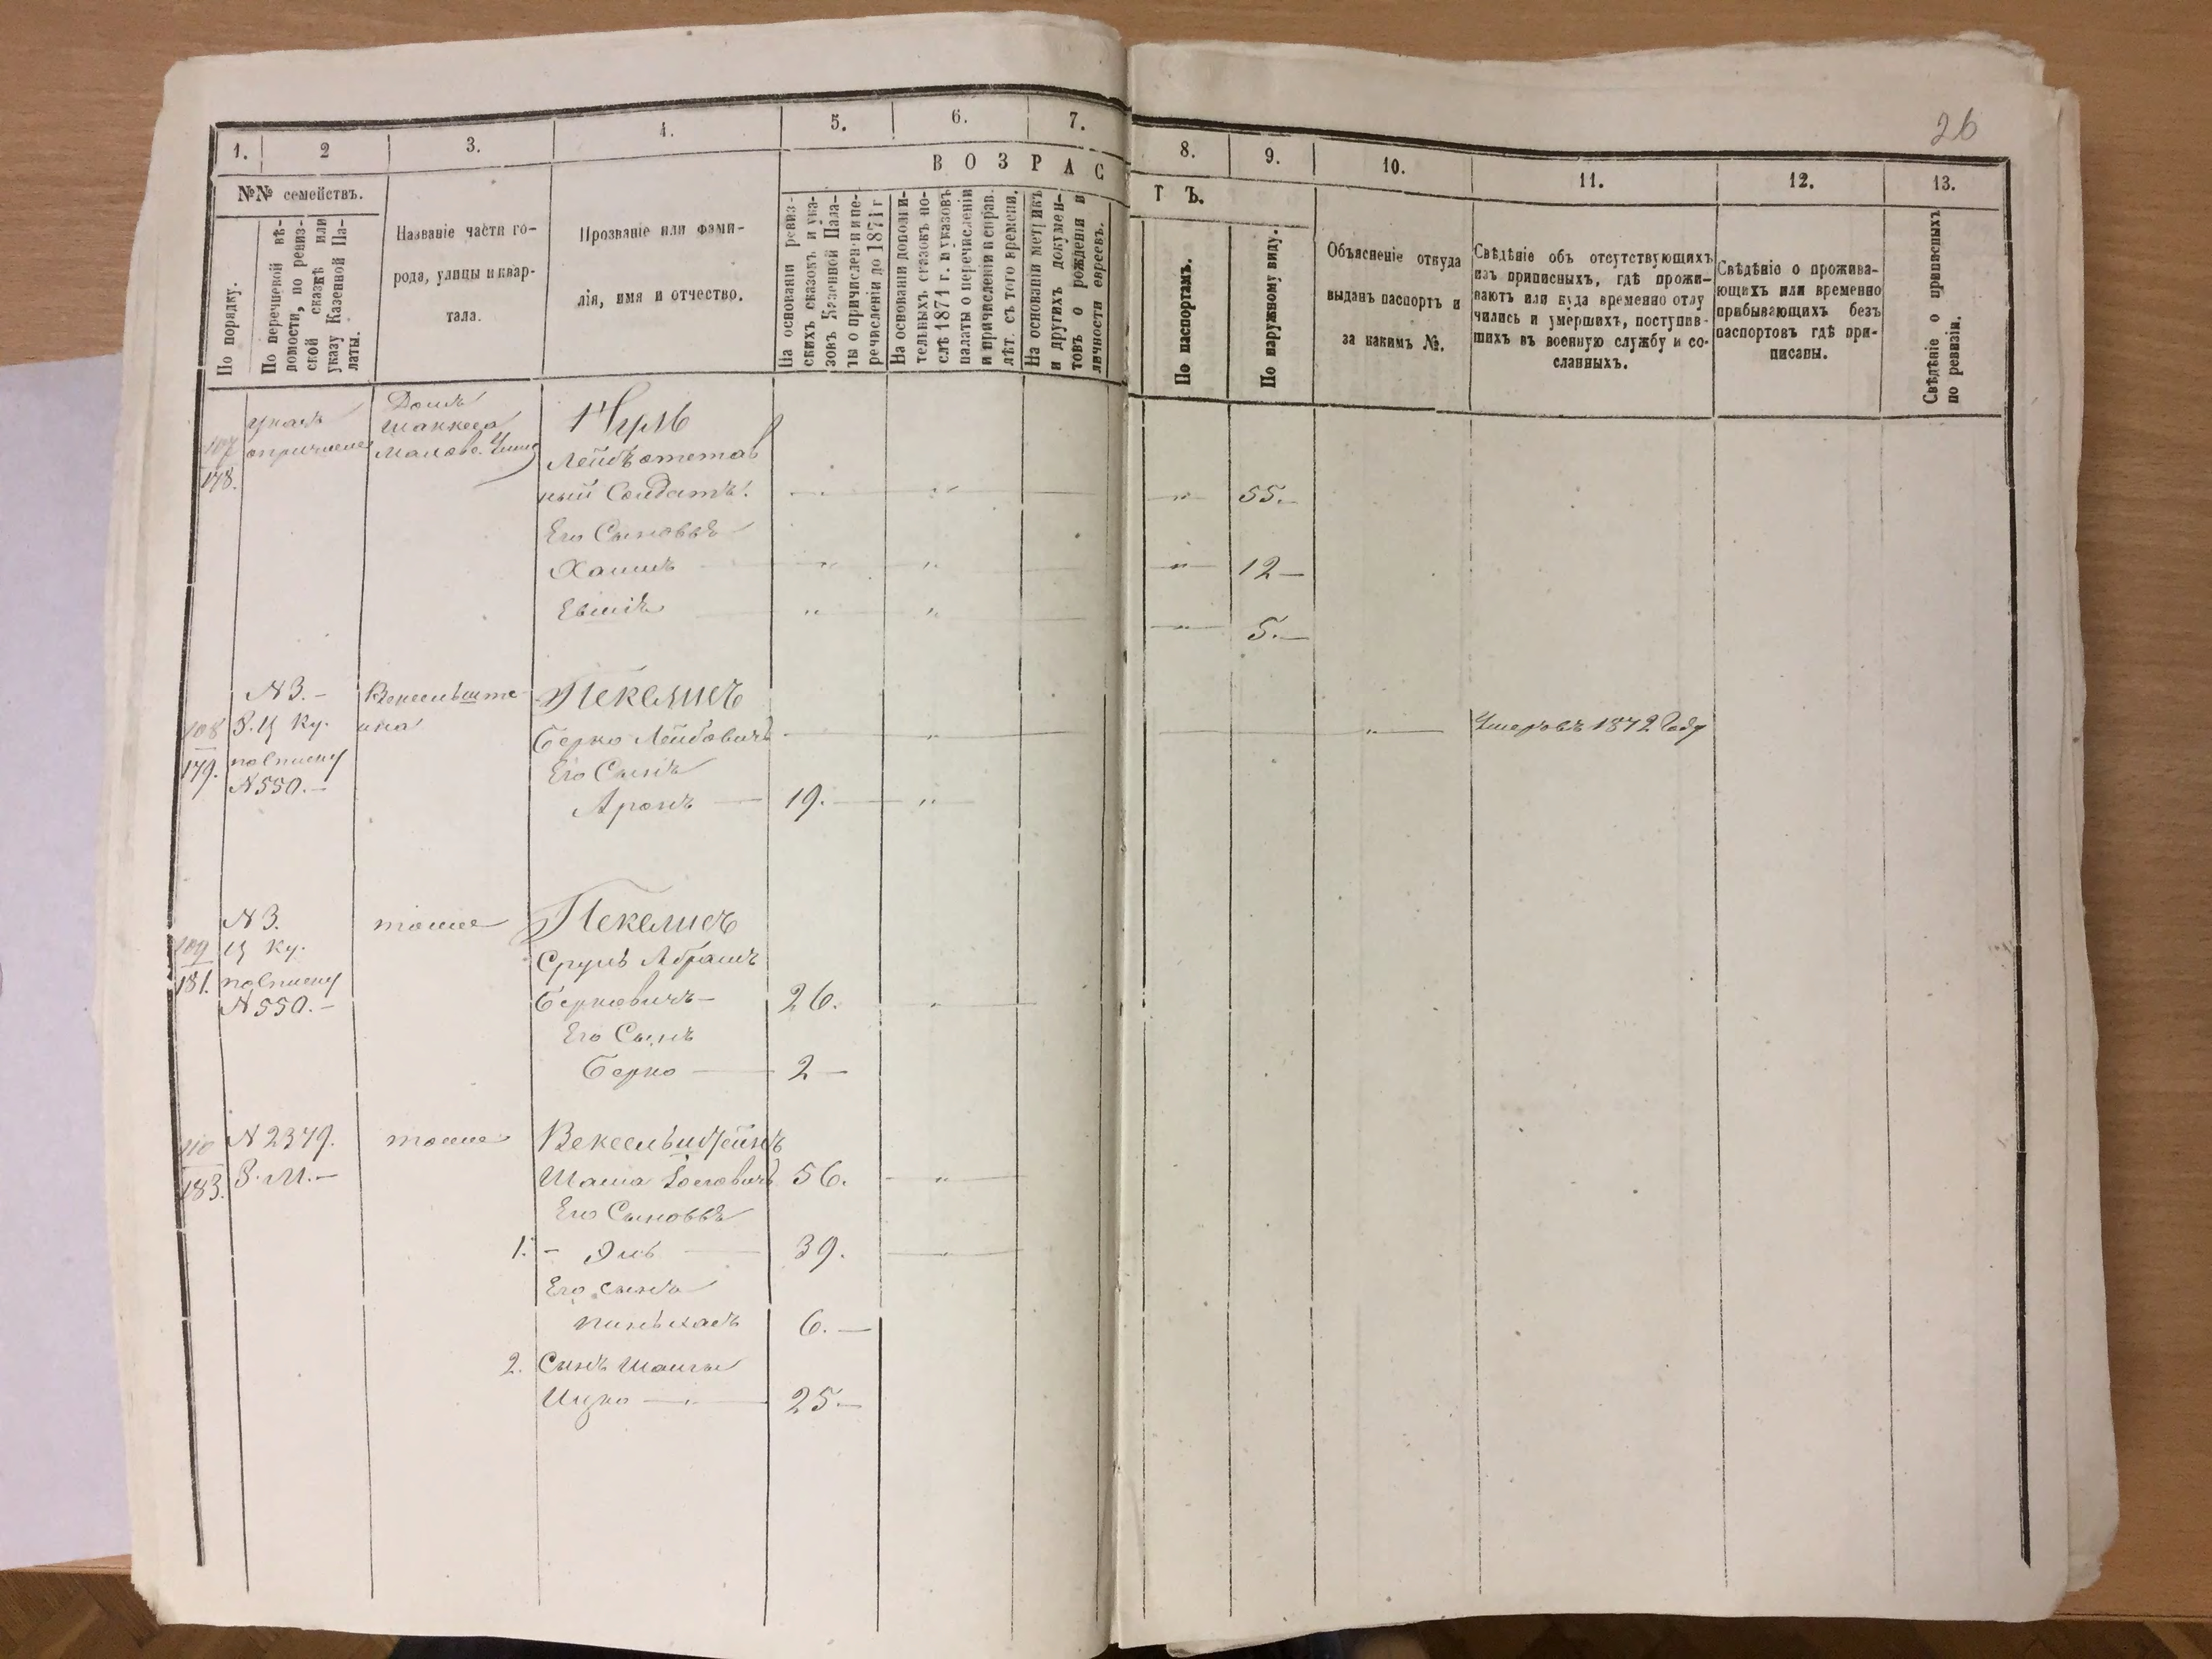 26
1. 2 3. 4. 5. 6. 7. 8. 9. 10. 11. 12. 13.
№№ семействъ.
В О З Р А С Т Ъ.
По порядку.
По перечневой вѣ-
домости, по ревиз-
ской сказкѣ или
указу Казенной Па-
латы.
Названіе части го-
рода, улицы и квар-
тала.
Прозваніе или фами-
лія, имя и отчество.
На основаніи ревиз-
скихъ сказокъ и ука-
зовъ Казенной Пала-
ты о причисленіи и пе-
речисленіи до 1871 г
На основаніи дополни-
тельныхъ сказокъ по-
слѣ 1871 г. и указовъ
палаты о перечисленіи
и причисленіи и справ.
лѣт. съ того времени.
На основаніи метрикъ
и другихъ докумен-
товъ о рожденіи и
личности евреевъ.
По паспортамъ.
По наружному виду.
Объясненіе откуда
выданъ паспортъ и
за какимъ №.
Свѣдѣніе объ отсутствующихъ
изъ приписныхъ, гдѣ прожи-
ваютъ или куда временно отлу
чились и умершихъ, поступив-
шихъ въ военную службу и со-
сланныхъ.
Свѣдѣніе о прожива-
ющихъ или временно
прибывающихъ безъ
паспортовъ гдѣ при-
писаны.
Свѣдѣніе о приписныхъ
по ревизіи.
107
178.
указъ
Домъ
Лейбъ отстав
ный Солдатъ. 55.
Его Сыновья
Хаимъ 12
5.
108
179.
N 3.
З. Ц Ку.
N 550.
Вексельште
ина
Пекелисъ
Берко Лейбовичъ Умеръ въ 1872 Году
Его Сынъ
Аронъ 19.
109
181.
N 3.
Ц Ку.
N 550.
тоже
Пекелисъ
Сруль Абрамъ
Берковичъ 26.
Его Сынъ
Берко 2
110
183.
N 2379.
З. М.
тоже
Вексельштейнъ
56.
Его Сыновья
1. 39.
Его сынъ
Пиньхасъ 6.
2. Сынъ
Ицко 25